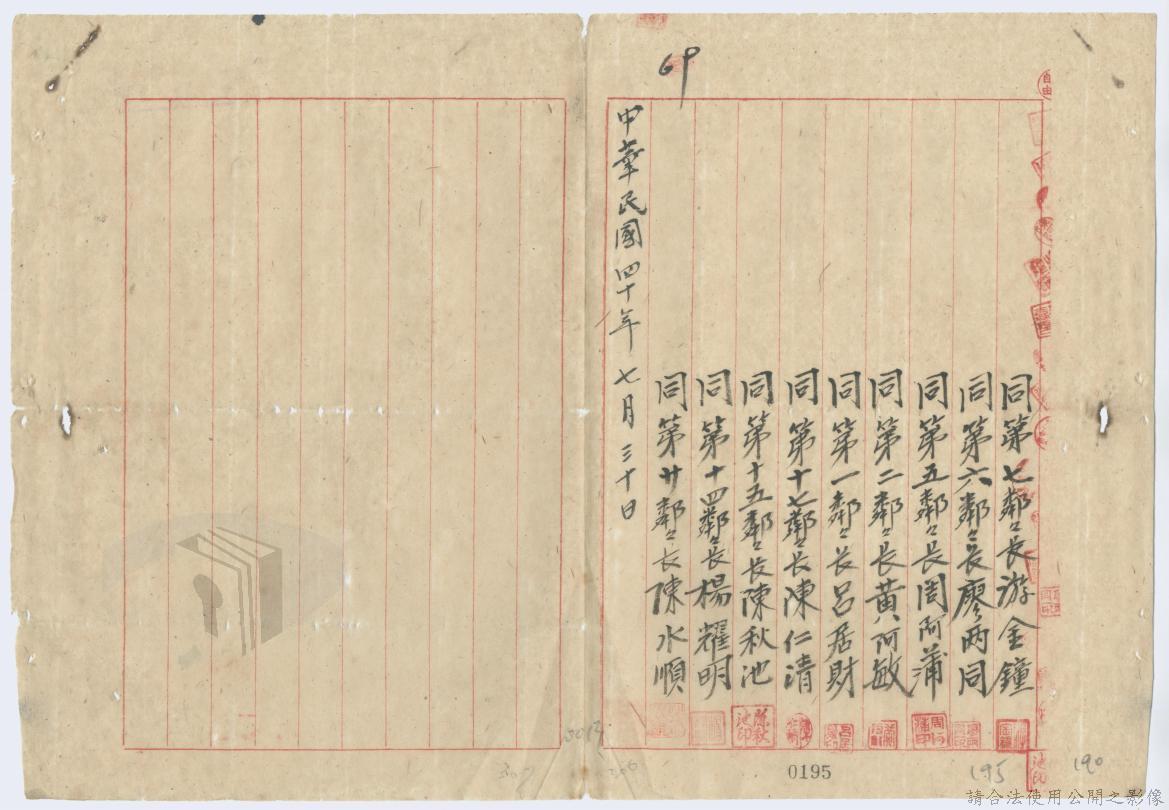 69
同第七鄰々長游金鐘
同第六鄰々長廖两同
同第五鄰々長周阿蒲
同第二鄰々長黃阿敏
同第一鄰々長呂居財
同第十七鄰々長陳仁清
同第十五鄰々長陳秋池
同第十四鄰々長楊耀明
同第廿鄰々長陳水順
中華民國四十年七月三十日
自由
陳秋池印
池印
0195
195
190
請合法使用公開之影像